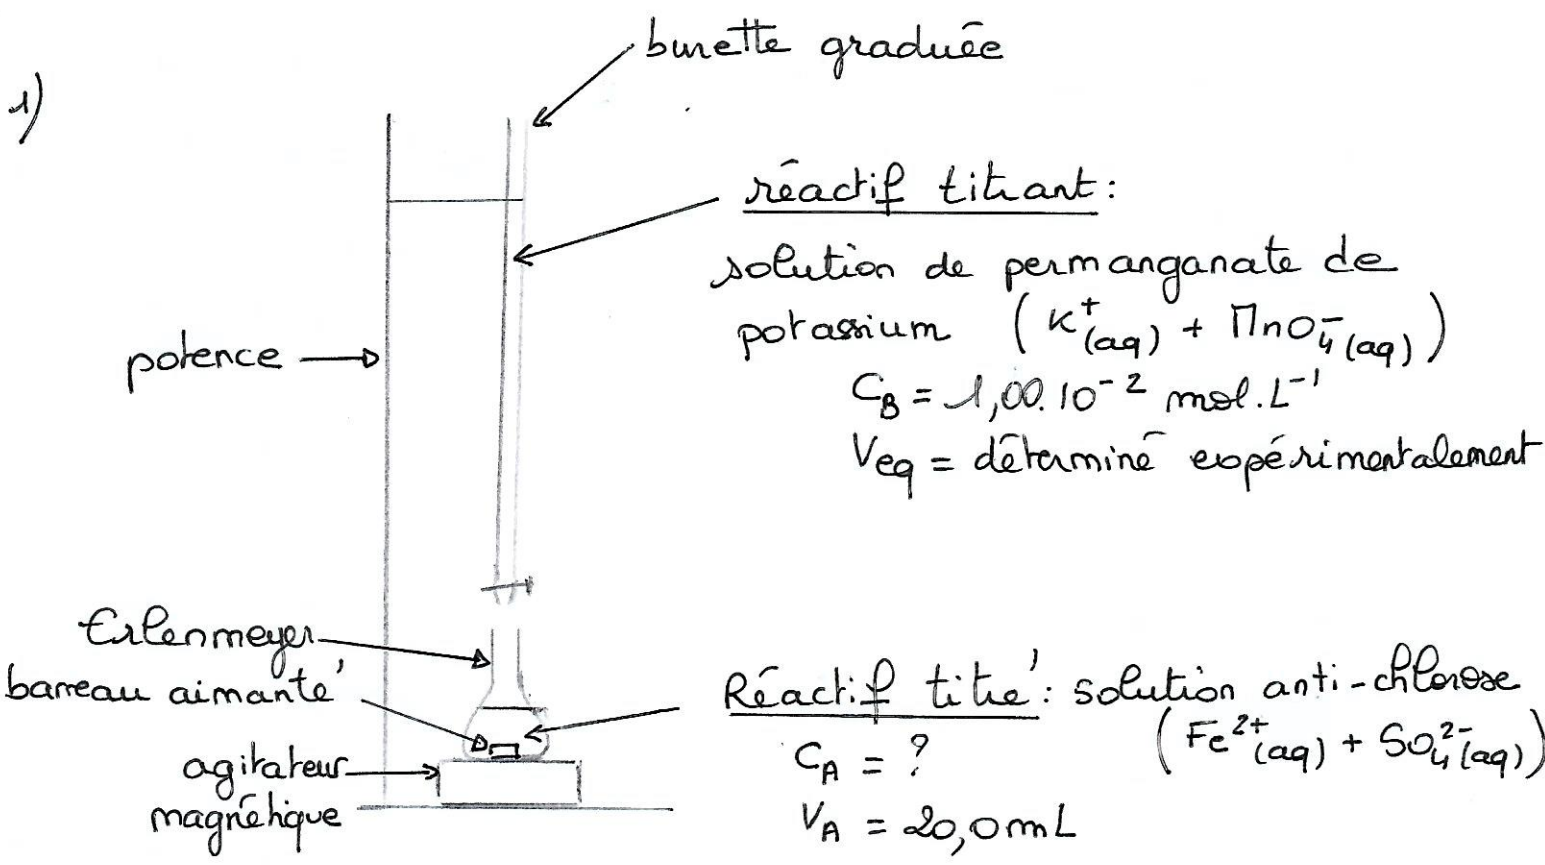 1)
burette graduée
réactif titrant :
solution de permanganate de
potassium (K⁺(aq) + MnO₄⁻(aq))
C_B = 1,00.10⁻² mol.L⁻¹
Veq = déterminé expérimentalement
potence
Erlenmeyer
barreau aimanté
agitateur
magnétique
Réactif titré : solution anti-chlorose
(Fe²⁺(aq) + SO₄²⁻(aq))
C_A = ?
V_A = 20,0 mL